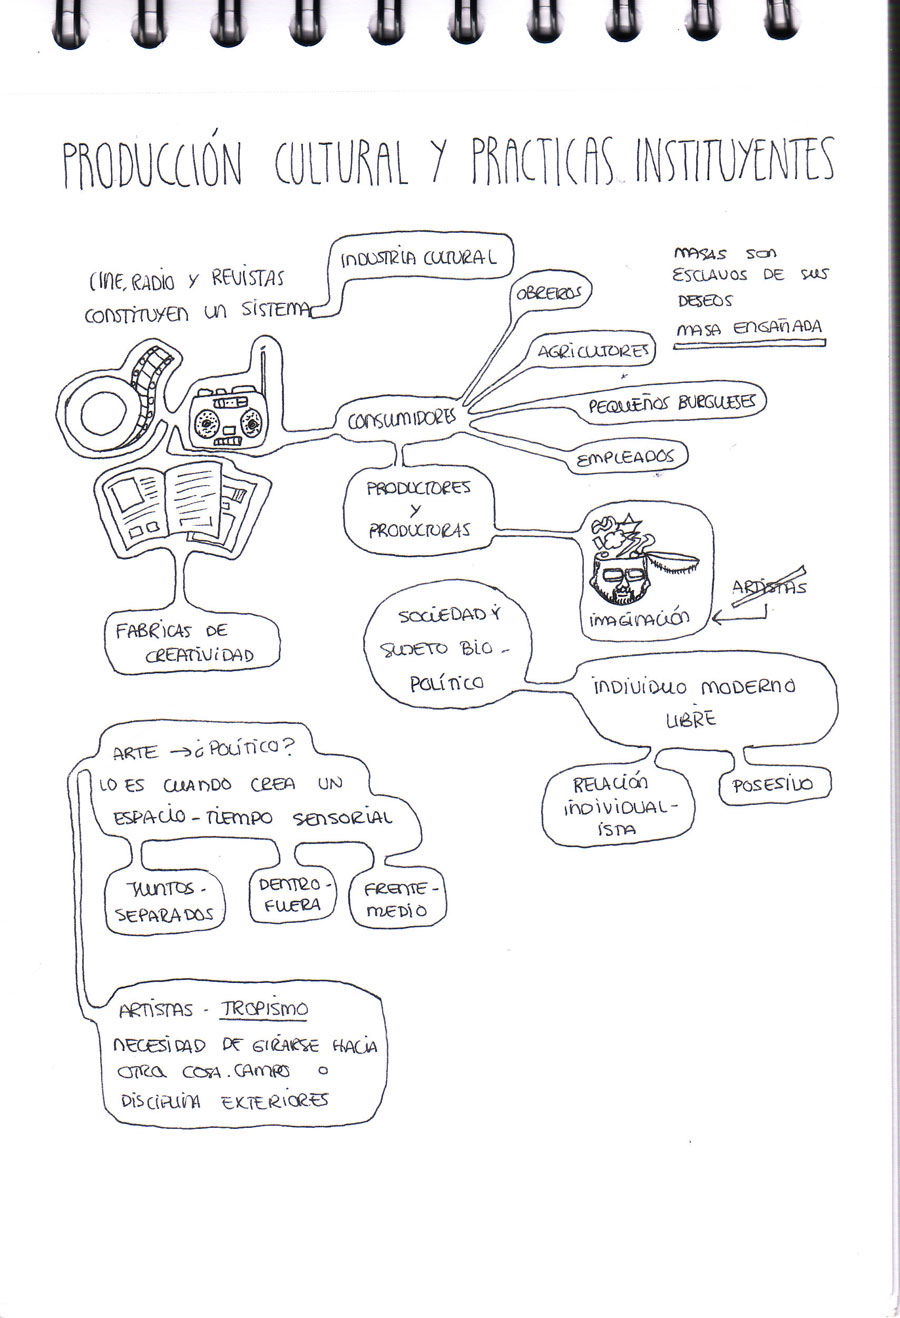 PRODUCCIÓN CULTURAL Y PRACTICAS INSTITUYENTES
INDUSTRIA CULTURAL
CINE, RADIO Y REVISTAS
CONSTITUYEN UN SISTEMA
MASAS SON
ESCLAVOS DE SUS
DESEOS
MASA ENGAÑADA
OBREROS
AGRICULTORES
PEQUEÑOS BURGUESES
EMPLEADOS
CONSUMIDORES
PRODUCTORES
Y
PRODUCTORAS
IMAGINACIÓN
ARTISTAS
FABRICAS DE
CREATIVIDAD
SOCIEDAD Y
SUJETO BIO-
POLÍTICO
INDIVIDUO MODERNO
LIBRE
RELACIÓN
INDIVIDUAL-
ISTA
POSESIVO
ARTE → ¿POLÍTICO?
LO ES CUANDO CREA UN
ESPACIO-TIEMPO SENSORIAL
JUNTOS-
SEPARADOS
DENTRO-
FUERA
FRENTE-
MEDIO
ARTISTAS - TROPISMO
NECESIDAD DE GIRARSE HACIA
OTRA COSA. CAMPO O
DISCIPLINA EXTERIORES